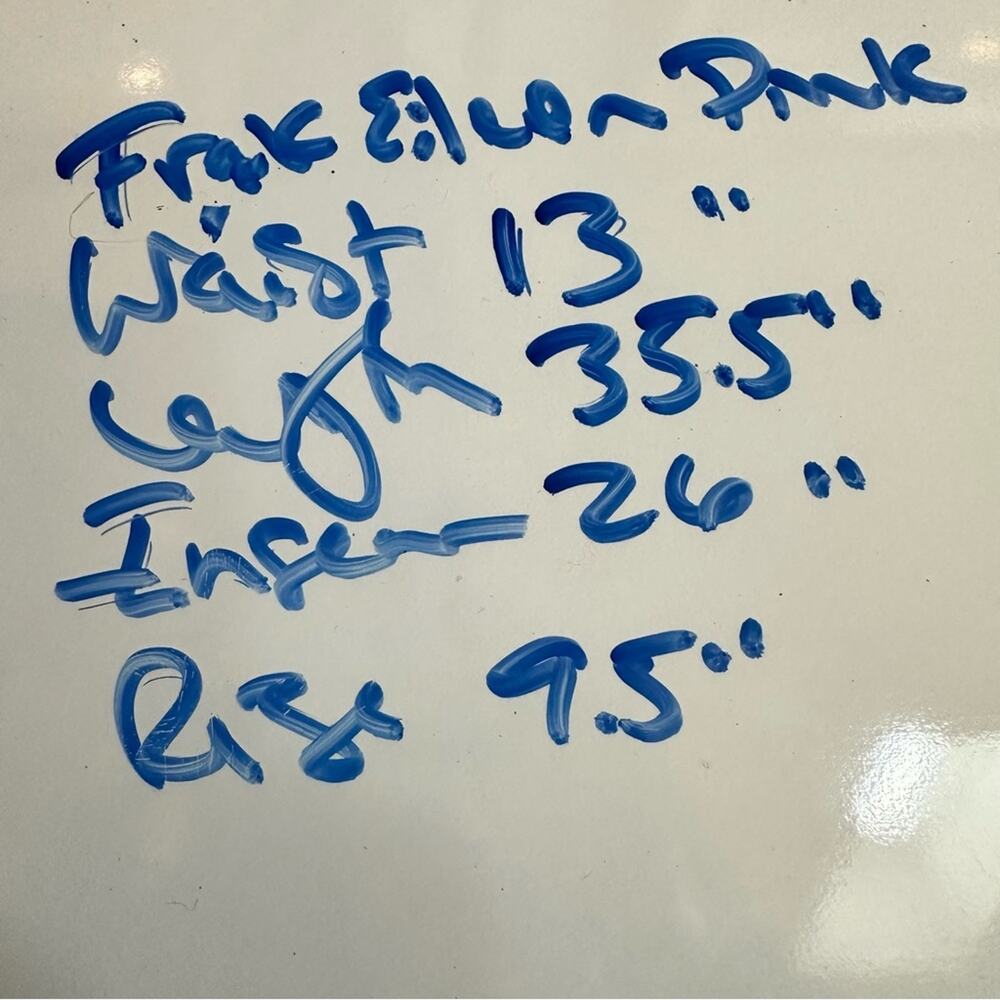 Frak Eileen Pink
Waist 13"
Length 35.5"
Inseam 26"
Rise 9.5"